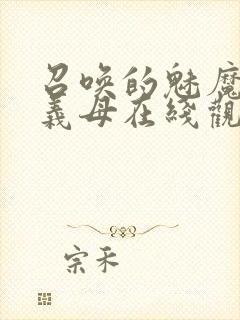 召唤的魅魔
義母在綫觀
宗禾